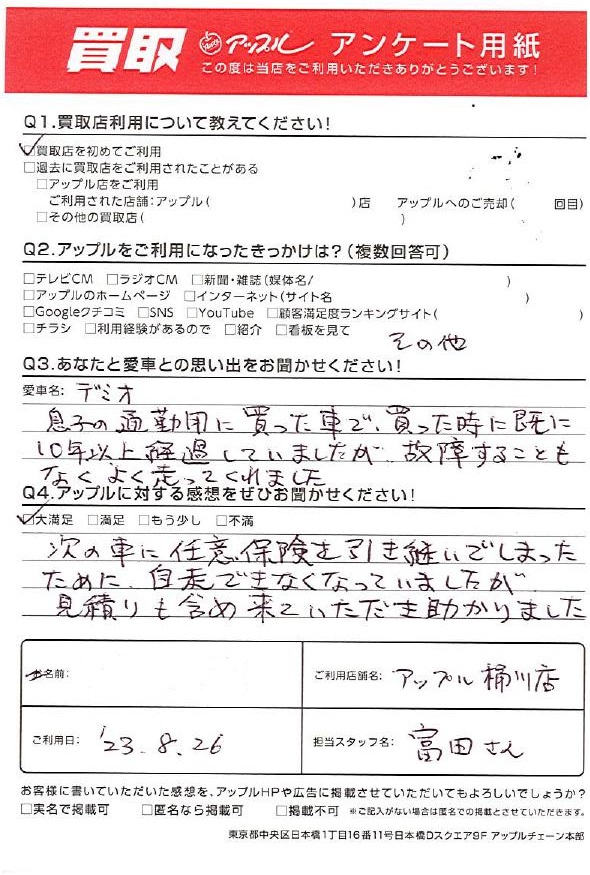 買取 アップル アンケート用紙
この度は当店をご利用いただきありがとうございます！
Q1.買取店利用について教えてください！
☑買取店を初めてご利用
□過去に買取店をご利用されたことがある
□アップル店をご利用
ご利用された店舗:アップル( )店 アップルへのご売却( 回目)
□その他の買取店( )
Q2.アップルをご利用になったきっかけは？(複数回答可)
□テレビCM □ラジオCM □新聞・雑誌(媒体名/ )
□アップルのホームページ □インターネット(サイト名 )
□Googleクチコミ □SNS □YouTube □顧客満足度ランキングサイト( )
□チラシ □利用経験があるので □紹介 □看板を見て
その他
Q3.あなたと愛車との思い出をお聞かせください！
愛車名: デミオ
息子の通勤用に買った車で、買った時に既に
10年以上経過していましたが、故障することも
なくよく走ってくれました
Q4.アップルに対する感想をぜひお聞かせください！
☑大満足 □満足 □もう少し □不満
次の車に任意保険を引き継いでしまった
ために、自走できなくなっていましたが
見積りも含め来ていただき助かりました
お名前: ご利用店舗名: アップル桶川店
ご利用日: '23.8.26 担当スタッフ名: 富田さん
お客様に書いていただいた感想を、アップルHPや広告に掲載させていただいてもよろしいでしょうか？
□実名で掲載可 □匿名なら掲載可 □掲載不可 ※ご記入がない場合は匿名での掲載とさせていただきます。
東京都中央区日本橋1丁目16番11号日本橋Dスクエア9F アップルチェーン本部